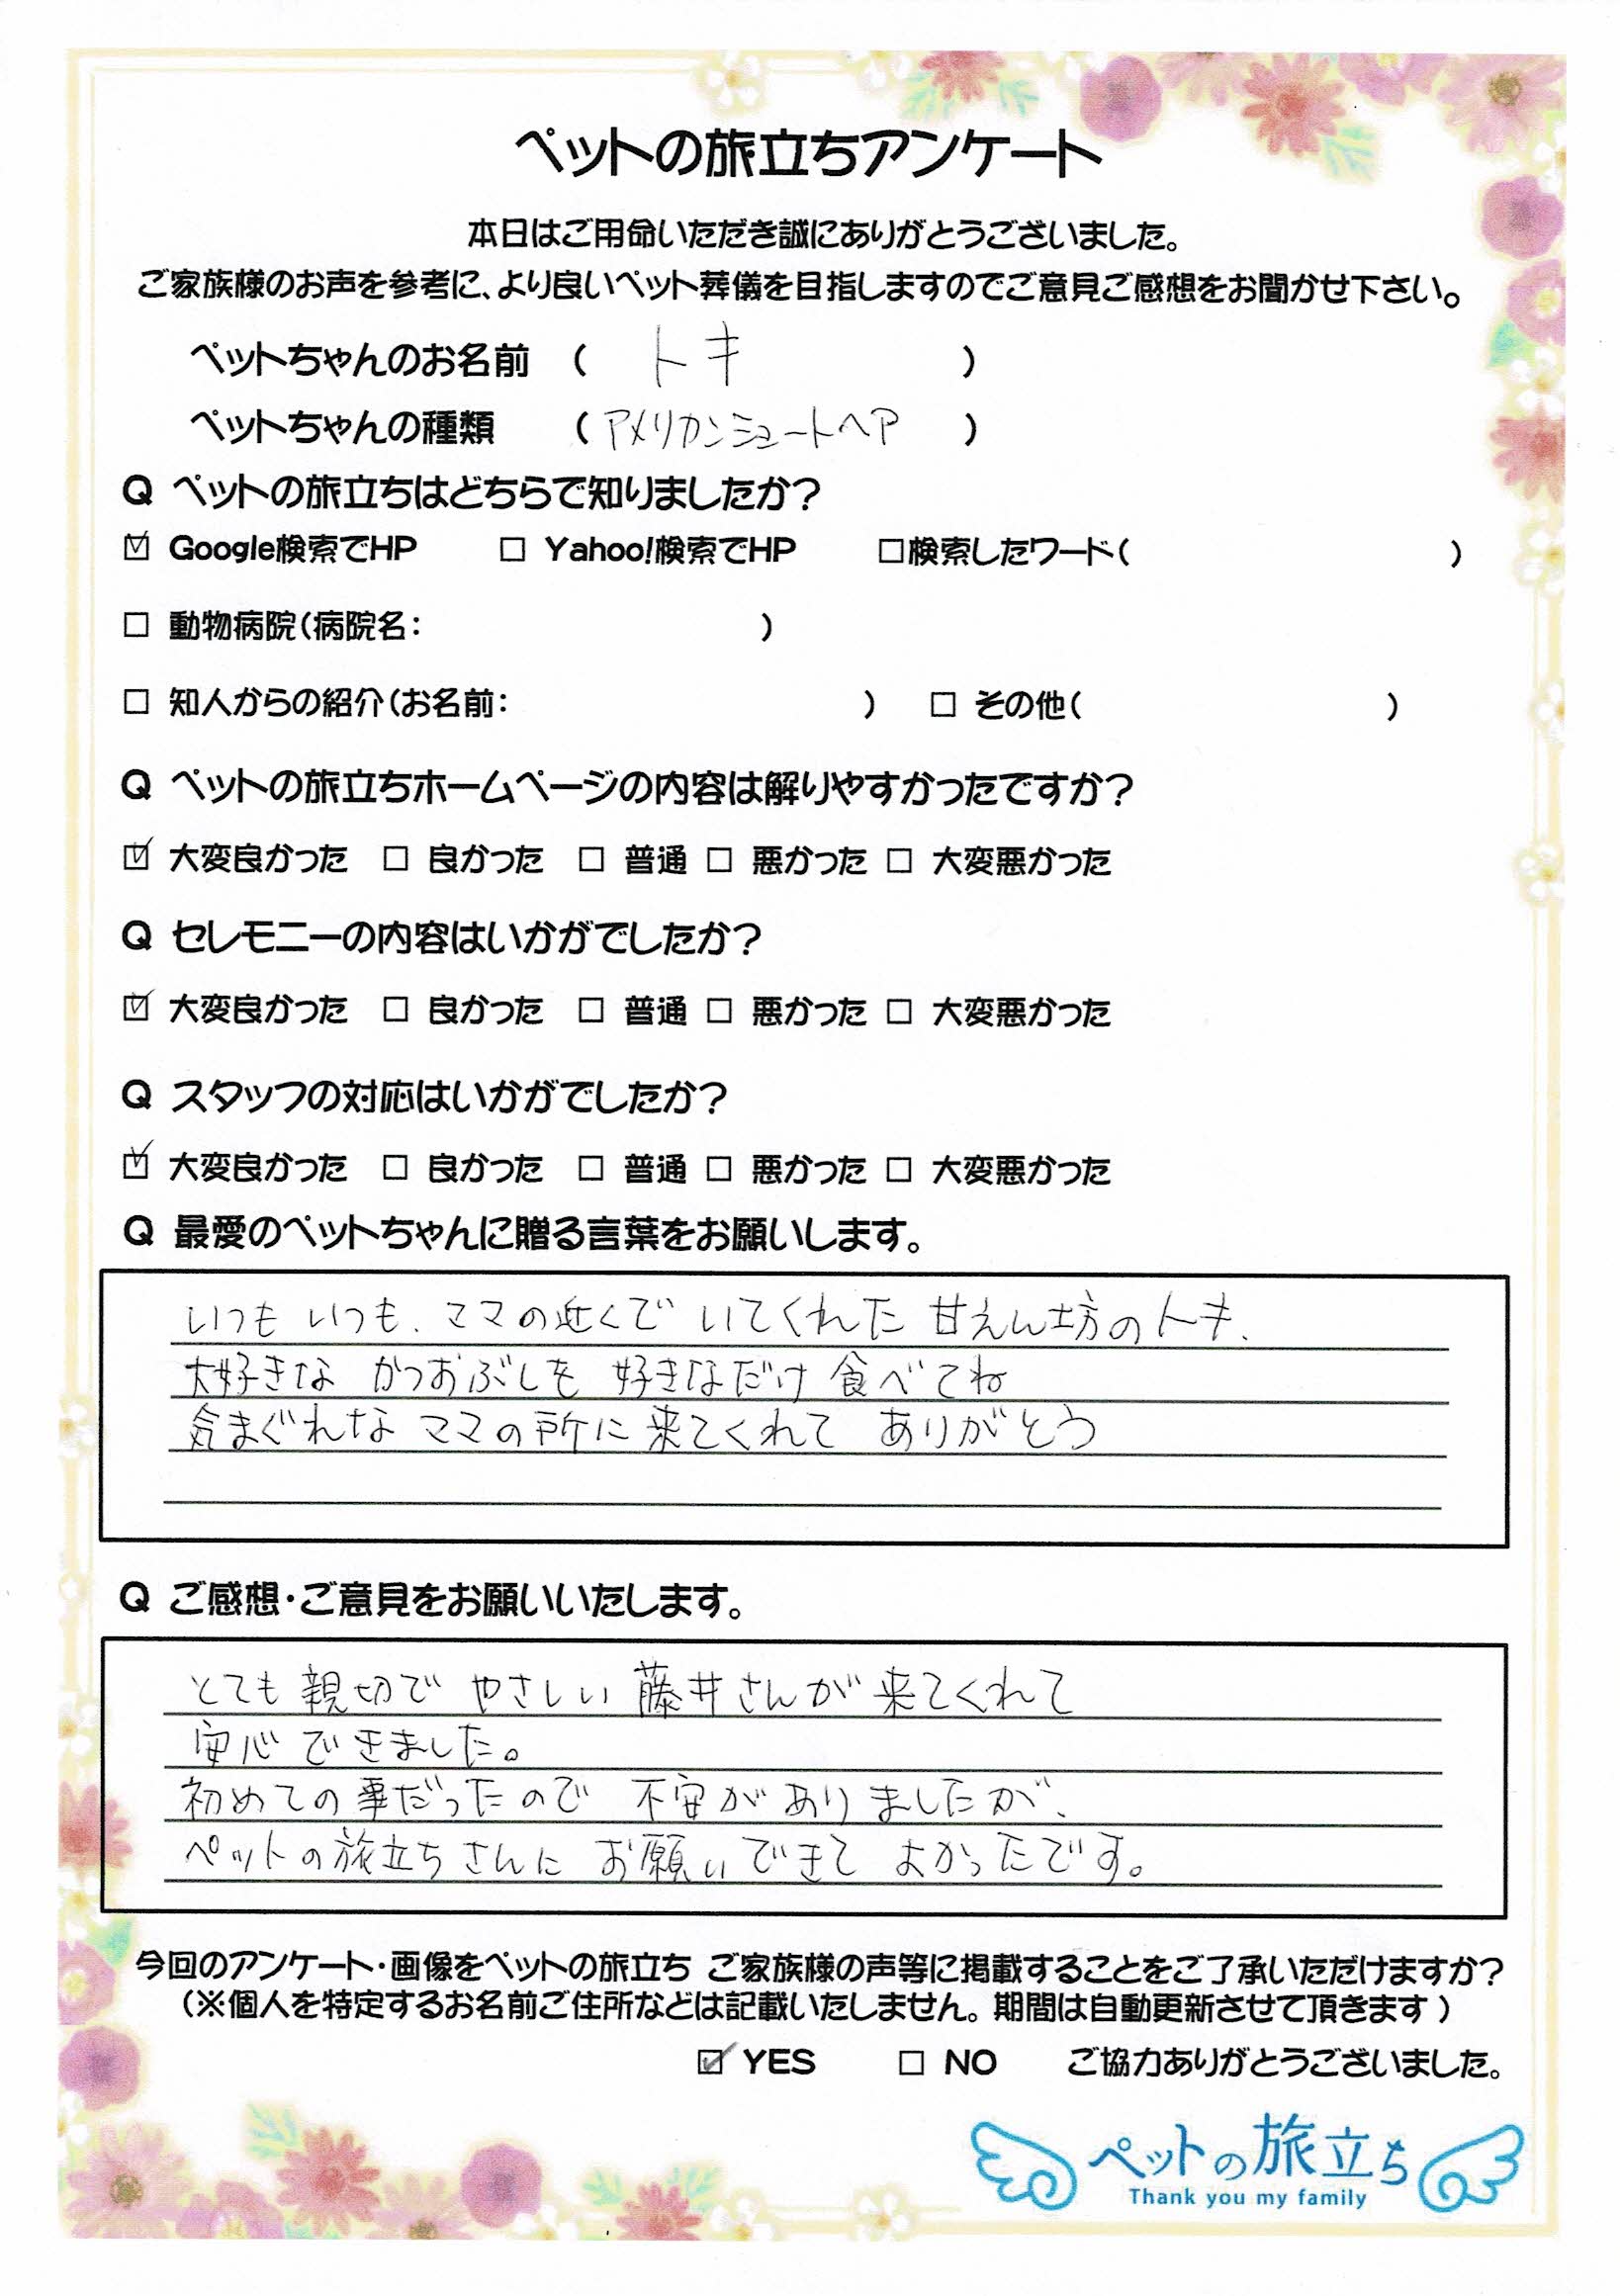 ペットの旅立ちアンケート
本日はご用命いただき誠にありがとうございました。
ご家族様のお声を参考に、より良いペット葬儀を目指しますのでご意見ご感想をお聞かせ下さい。
ペットちゃんのお名前 ( トキ )
ペットちゃんの種類 ( アメリカンシュートヘア )
Q ペットの旅立ちはどちらで知りましたか?
☑ Google検索でHP □ Yahoo!検索でHP □検索したワード( )
□ 動物病院(病院名: )
□ 知人からの紹介(お名前: ) □ その他( )
Q ペットの旅立ちホームページの内容は解りやすかったですか?
☑ 大変良かった □ 良かった □ 普通 □ 悪かった □ 大変悪かった
Q セレモニーの内容はいかがでしたか?
☑ 大変良かった □ 良かった □ 普通 □ 悪かった □ 大変悪かった
Q スタッフの対応はいかがでしたか?
☑ 大変良かった □ 良かった □ 普通 □ 悪かった □ 大変悪かった
Q 最愛のペットちゃんに贈る言葉をお願いします。
いつも いつも、ママの近くで いてくれた 甘えん坊のトキ、
大好きな かつおぶしを 好きなだけ 食べてね
気まぐれな ママの所に 来てくれて ありがとう
Q ご感想・ご意見をお願いいたします。
とても 親切で やさしい 藤井さんが 来てくれて
安心 できました。
初めての事だったので 不安がありましたが、
ペットの旅立ちさんに お願いできて よかったです。
今回のアンケート・画像をペットの旅立ち ご家族様の声等に掲載することをご了承いただけますか?
(※個人を特定するお名前ご住所などは記載いたしません。期間は自動更新させて頂きます)
☑ YES □ NO ご協力ありがとうございました。
ペットの旅立ち
Thank you my family